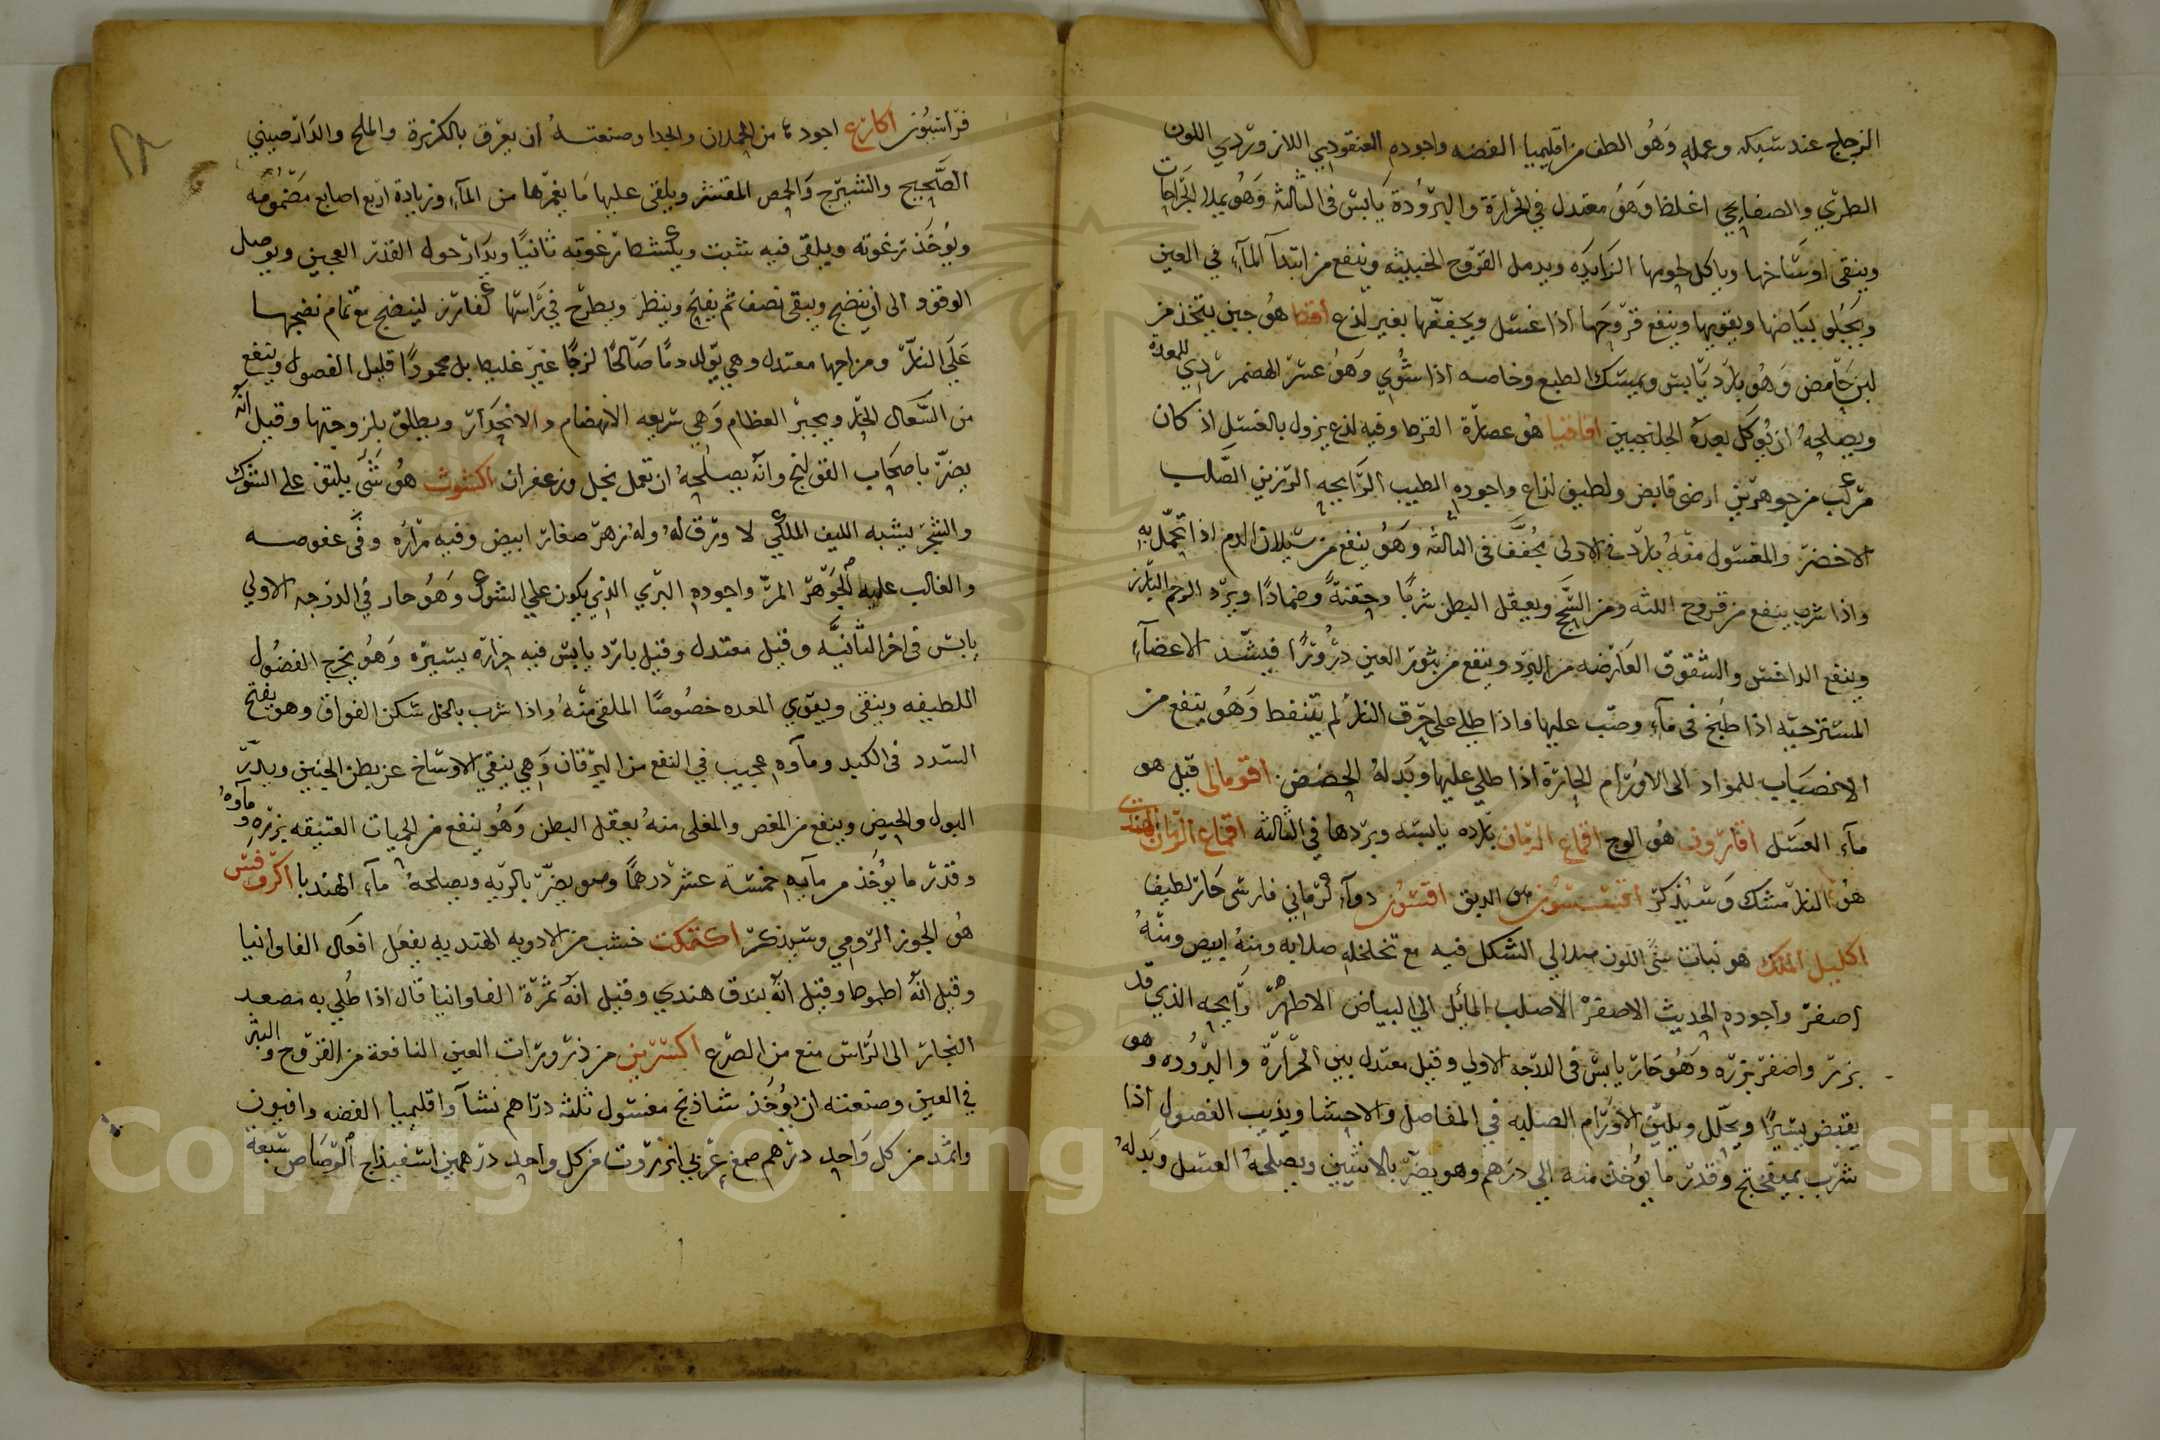 الزجاج عند سبكه وعمله وهو الطف من اقليميا الفضه واجوده العنقودي اللازوردي اللون
الطري والصفايحي اغلظ وهو معتدل في الحرارة والبرودة يابس في الثالثه وهو يملا الجراحات
وينقى اوساخها وياكل لحومها الزايده ويدمل القروح الخبيثه وينفع من ابتدآ المآء في العين
ويجلو بياضها ويقويها وينفع قروحها اذا غسل ويجففها بغير لذع اقط هو جبن يتخذ من
لبن حامض وهو بارد يابس ويمسك الطبع وخاصه اذا شوي وهو عسر الهضم ردي للمعدة
ويصلحه ان يوكل بعده الجلنجبين اقاقيا هو عصارة القرظ وفيه لذع يزول بالغسل اذ كان
مركب من جوهرين ارضى قابض ولطيف لذاع واجوده الطيب الرايحه الرزين الصلب
الاخضر والمغسول منه بارد في الاولى يجفف في الثالثه وهو ينفع من سيلان الدم اذا تحمل به
واذا شرب ينفع من قروح اللثه ومن السحج ويعقل البطن شربا وحقنة وضمادا ويرد الرحم البارز
وينفع الداخس والشقوق العارضه من البرد وينفع من بثور العين درورا فيشد الاعضآء
المسترخيه اذا طبخ فى مآء وصب عليها واذا طلي على حرق النار لم يتنفط وهو ينفع من
الانصباب للمواد الى الاورام الحارة اذا طلي عليها وبدله الحضض اقومالى قيل هو
مآء العسل اقارون هو الوج اقماع الرمان بارده يابسه وبردها في الثالثه اقماع الرمان الهندي
هو النارمشك وسيذكر هى الدبق اقسون دوآء كرماني فارسى حار لطيف
اكليل الملك هو نبات تبنى اللون هلالي الشكل فيه مع تخلخله صلابه ومنه ابيض ومنه
اصفر واجوده الحديث الاصفر الاصلب المائل الي البياض الاظهر رايحه الذي قد
بزر واصفر بزره وهو حار يابس فى الدرجه الاولي وقيل معتدل بين الحرارة والبروده وهو
يقبض يسيرا ويحلل ويلين الاورام الصلبه في المفاصل والاحشا ويذيب الفضول اذا
شرب بميفختج وقدر ما يوخذ منه الي درهم وهو يضر بالانثيين ويصلحه العسل وبدله
فراسيون اكارع اجوده من الحملان والجدا وصنعته ان يعرق بالكزبرة والملح والدارصيني
الصحيح والشيرج والحمص المقشر ويلقى عليها ما يغمرها من المآء وزيادة اربع اصابع مضمومه
ويوخذ رغوته ويلقى فيه شبت ويكشط رغوته ثانيا ويدار حول القدر العجين ويوصل
الوقود الى ان ينضج ويبقى نصف ثم يفتح وينظر ويطرح في راسها كفا رز لينضج مع تمام نضجها
على النار ومزاجها معتدل وهي يولد دما صالحا لزجا غير غليظ بل محمودا قليل الفضول وينفع
من السعال الحار ويجبر العظام وهي سريعه الانهضام والانحدار ويطلق بلزوجتها وقيل انه
يضر باصحاب القولنج وانه يصلحه ان تعمل بخل وزعفران اكشوث هو شى يلتف على الشوك
والشجر يشبه الليف الملكي لا ورق له وله زهر صغار ابيض وفيه مراره وفى عفوصه
والغالب عليه الجوهر المر واجوده البري الذي يكون علي الشوك وهو حار في الدرجه الاولي
يابس في اخر الثانيه وقيل معتدل وقيل بارد يابس فيه حرارة يسيره وهو يخرج الفضول
اللطيفه وينقى ويقوي المعده خصوصا الملقى منه واذا شرب بالخل سكن الفواق وهو يفتح
السدد فى الكبد ومآوه عجيب في النفع من اليرقان وهي ينقي الاوساخ عن بطن الجنين ويدر
البول والحيض وينفع من المغص والمغلى منه يعقل البطن وهو ينفع من الحميات العتيقه بزره ومآوه
وقدر ما يوخذ من مآيه خمسة عشر درهما وهو يضر بالريه ويصلحه مآء الهندبا اكرفس
هو الجوز الرومي وسيذكر اكتمكت خشب من الادويه الهنديه يفعل افعال الفاوانيا
وقيل انه اطموط وقيل انه بندق هندي وقيل انه ثمرة الفاوانيا قال اذا طلي به مصعد
البخار الى الراس منع من الصرع اكسرين من ذرورات العين النافعة من القروح والبثر
في العين وصنعته ان يوخذ شاذنج مغسول ثلثه دراهم نشآ واقليميا الفضه وافيون
واثمد من كل واحد درهم صمغ عربي انزروت من كل واحد درهمين اسفيذاج الرصاص سبعة
٢٨
Copyright © King Saud University